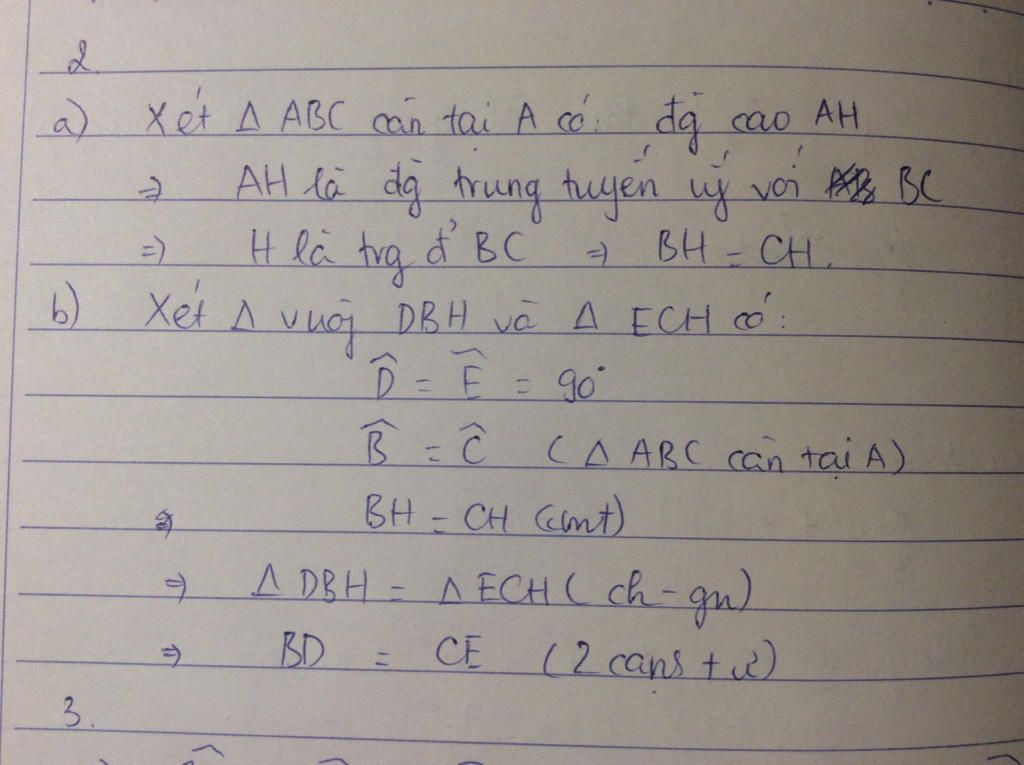 2.
a) Xét Δ ABC cân tại A có: đg cao AH
=> AH là đg trung tuyến ứ với BC
=> H là trg đ' BC => BH = CH.
b) Xét Δ vuôg DBH và Δ ECH có:
D̂ = Ê = 90°
B̂ = Ĉ (Δ ABC cân tại A)
BH = CH (cmt)
=> Δ DBH = Δ ECH (ch-gn)
=> BD = CE (2 cạnh t ư)
3.